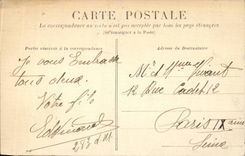 CARTE POSTALE
La correspondance au recto n'est pas acceptée par tous les pays étrangers
(Se renseigner à la Poste)
Partie réservée à la correspondance
Adresse du Destinataire
Je vous Embrasse
tous deux.
Votre fils
Edmond
M. et Mme
12 Rue Cadet 12
Paris IXème
Seine